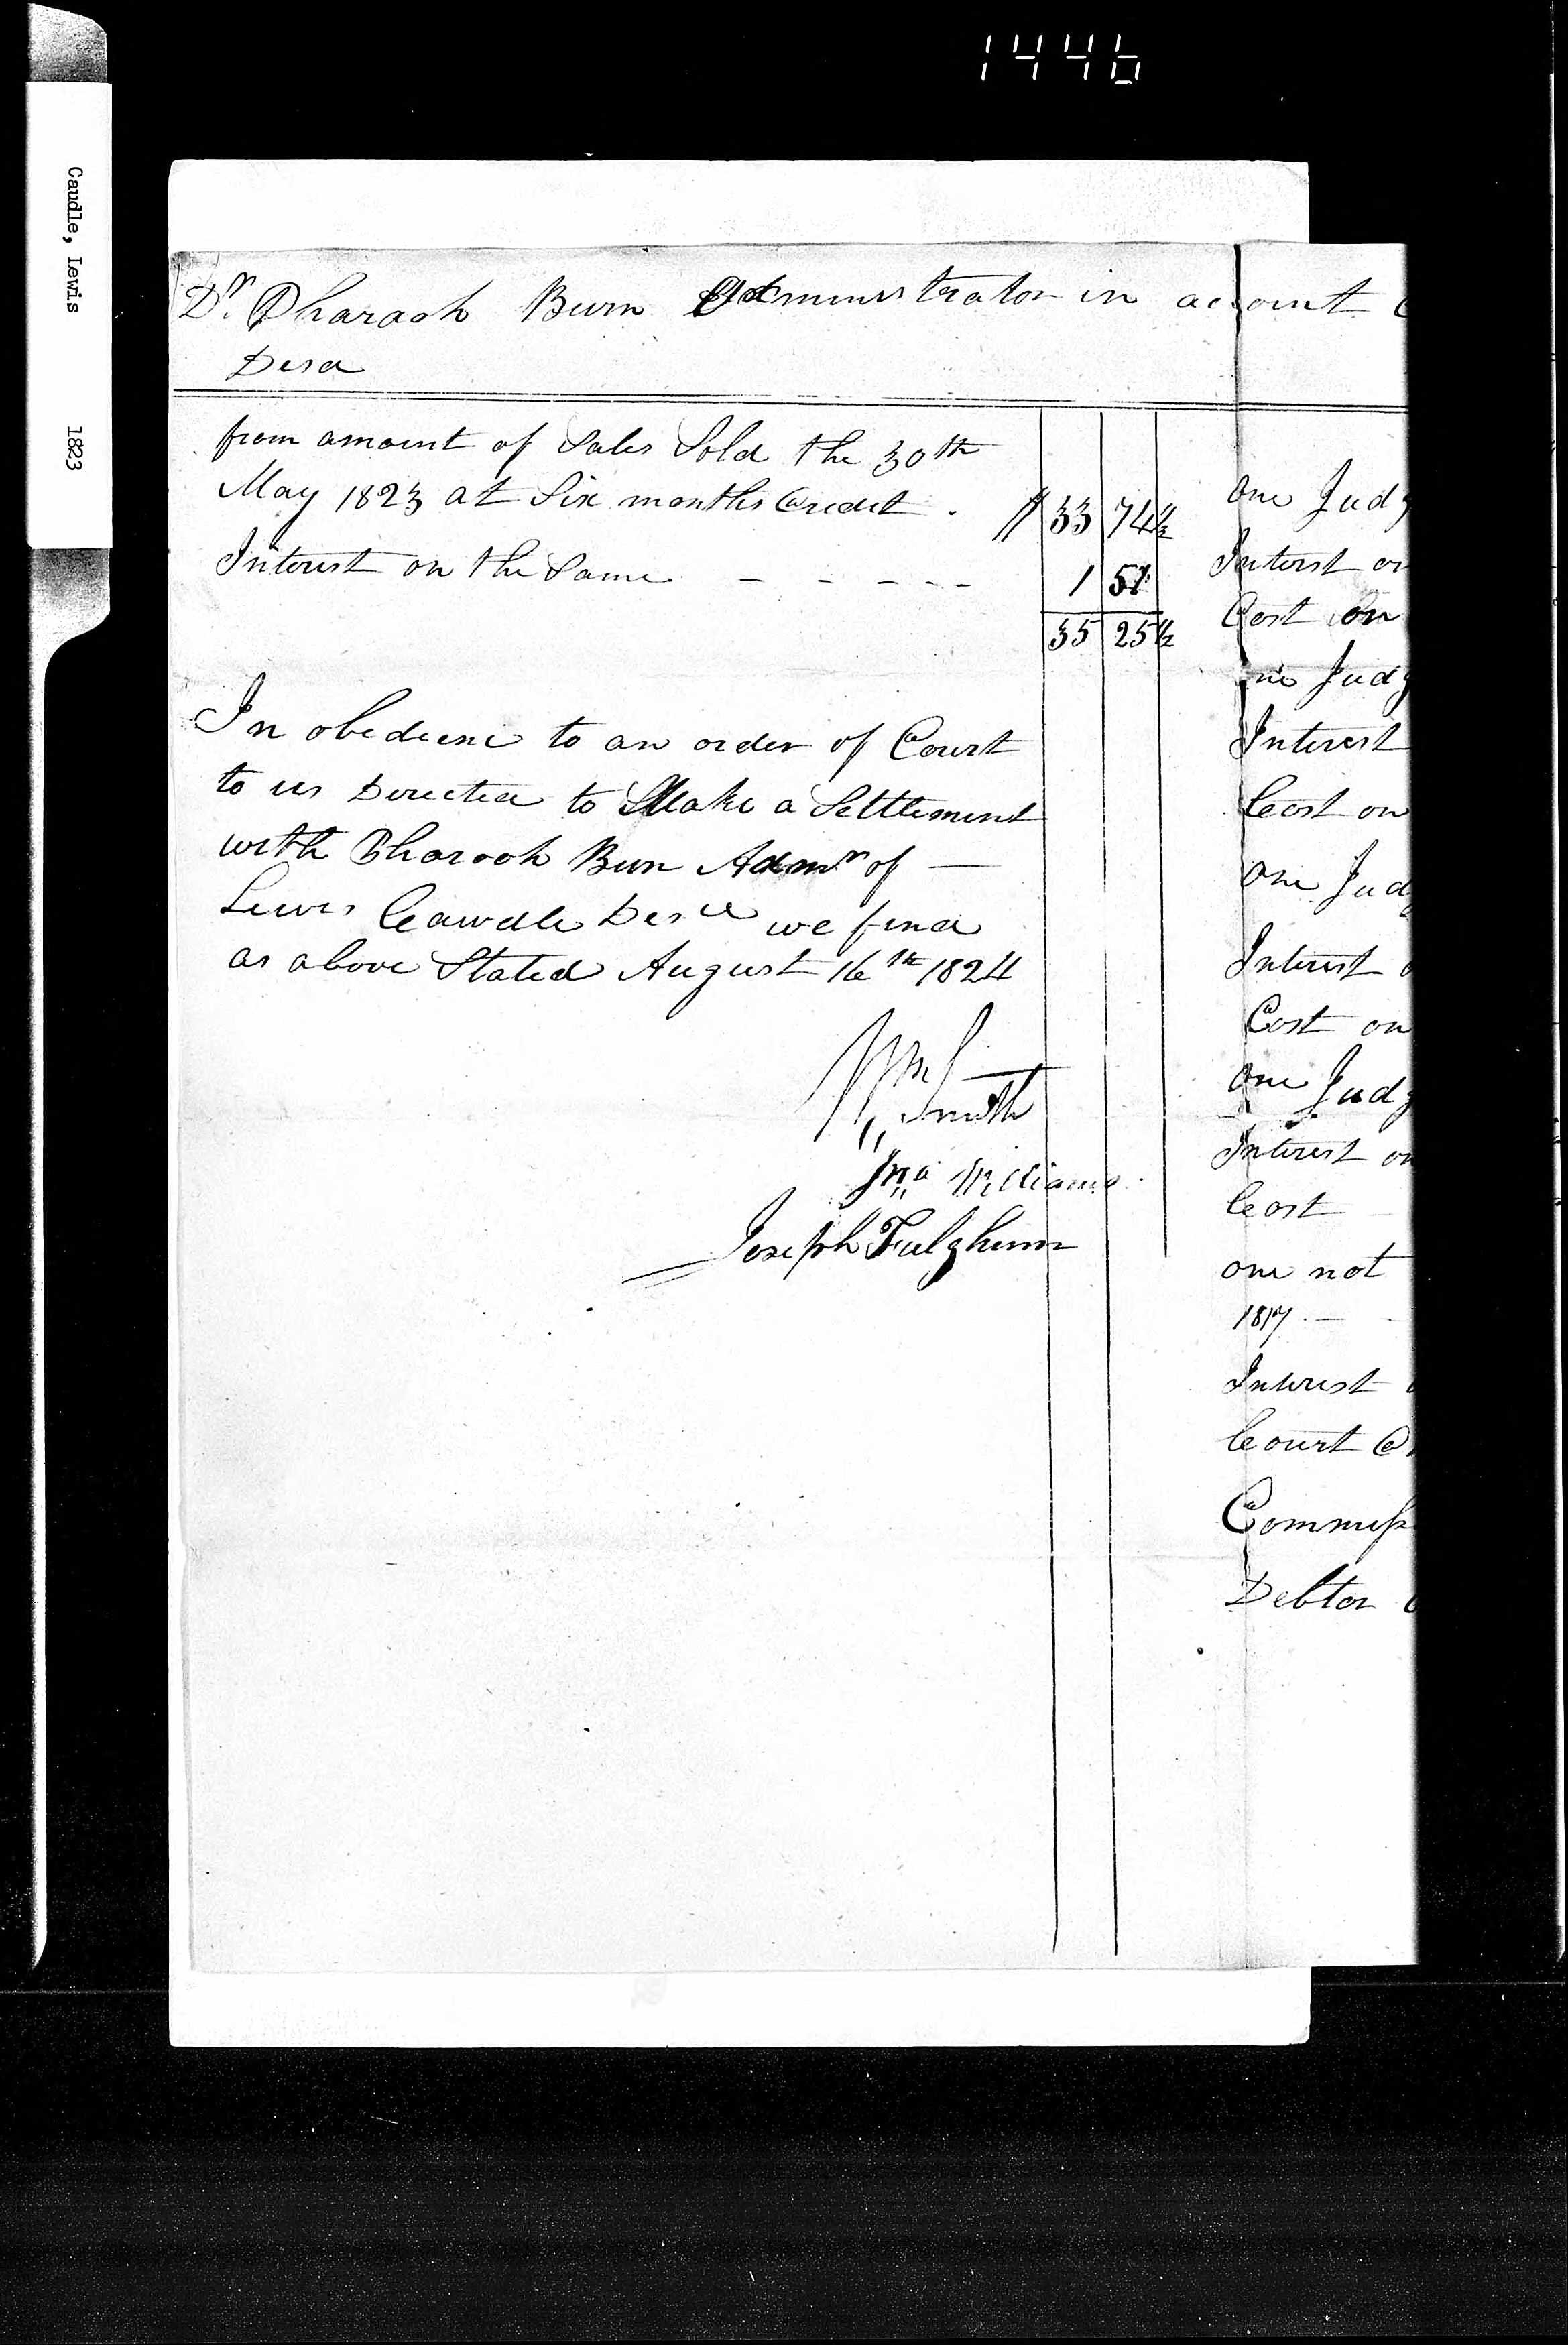 1446
Caudle, Lewis 1823
Dr. Pharaoh Burn Administrator in account
Desd
from amount of Sales Sold the 30th
May 1823 at Six months Credit . $ 33 74 1/2
Interest on the Same - - - - - 1 51
35 25 1/2
In obedience to an order of Court
to us Directed to Make a Settlement
with Pharaoh Burn Admr of —
Lewis Cawdle Desd we find
as above Stated August 16th 1824
Wm Smith
Jno Williams
Joseph Fulghum
one Judg
Interst on
Cost on
one Judg
Interest
Cost on
one Judg
Interest
Cost on
one Judg
Interest on
Cost
one not
1817 . —
Interest
Court
Commiss
Debtor